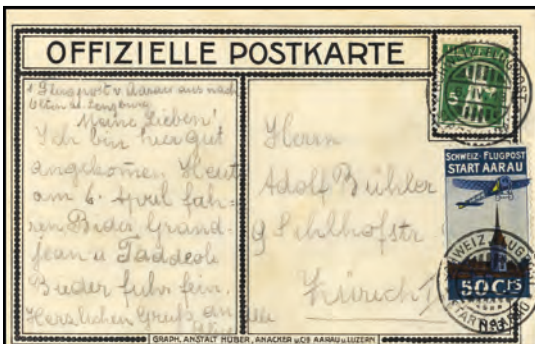 OFFIZIELLE POSTKARTE
1. Flugpost v. Aarau aus nach
Olten u. Lenzburg
Meine Lieben!
Ich bin hier gut
angekommen. Heut
am 6. April fah-
ren Bider, Grand-
jean u. Taddeoli
Bieder fuhr fein.
Herzlichen Gruß an
alle
Herrn
Adolf Bühler
9 Sehlhofstr
Zürich 1
5
SCHWEIZ. FLUGPOST
START AARAU
50 Cts
GRAPH. ANSTALT HÜBER, ANACKER & Cie AARAU u. LUZERN